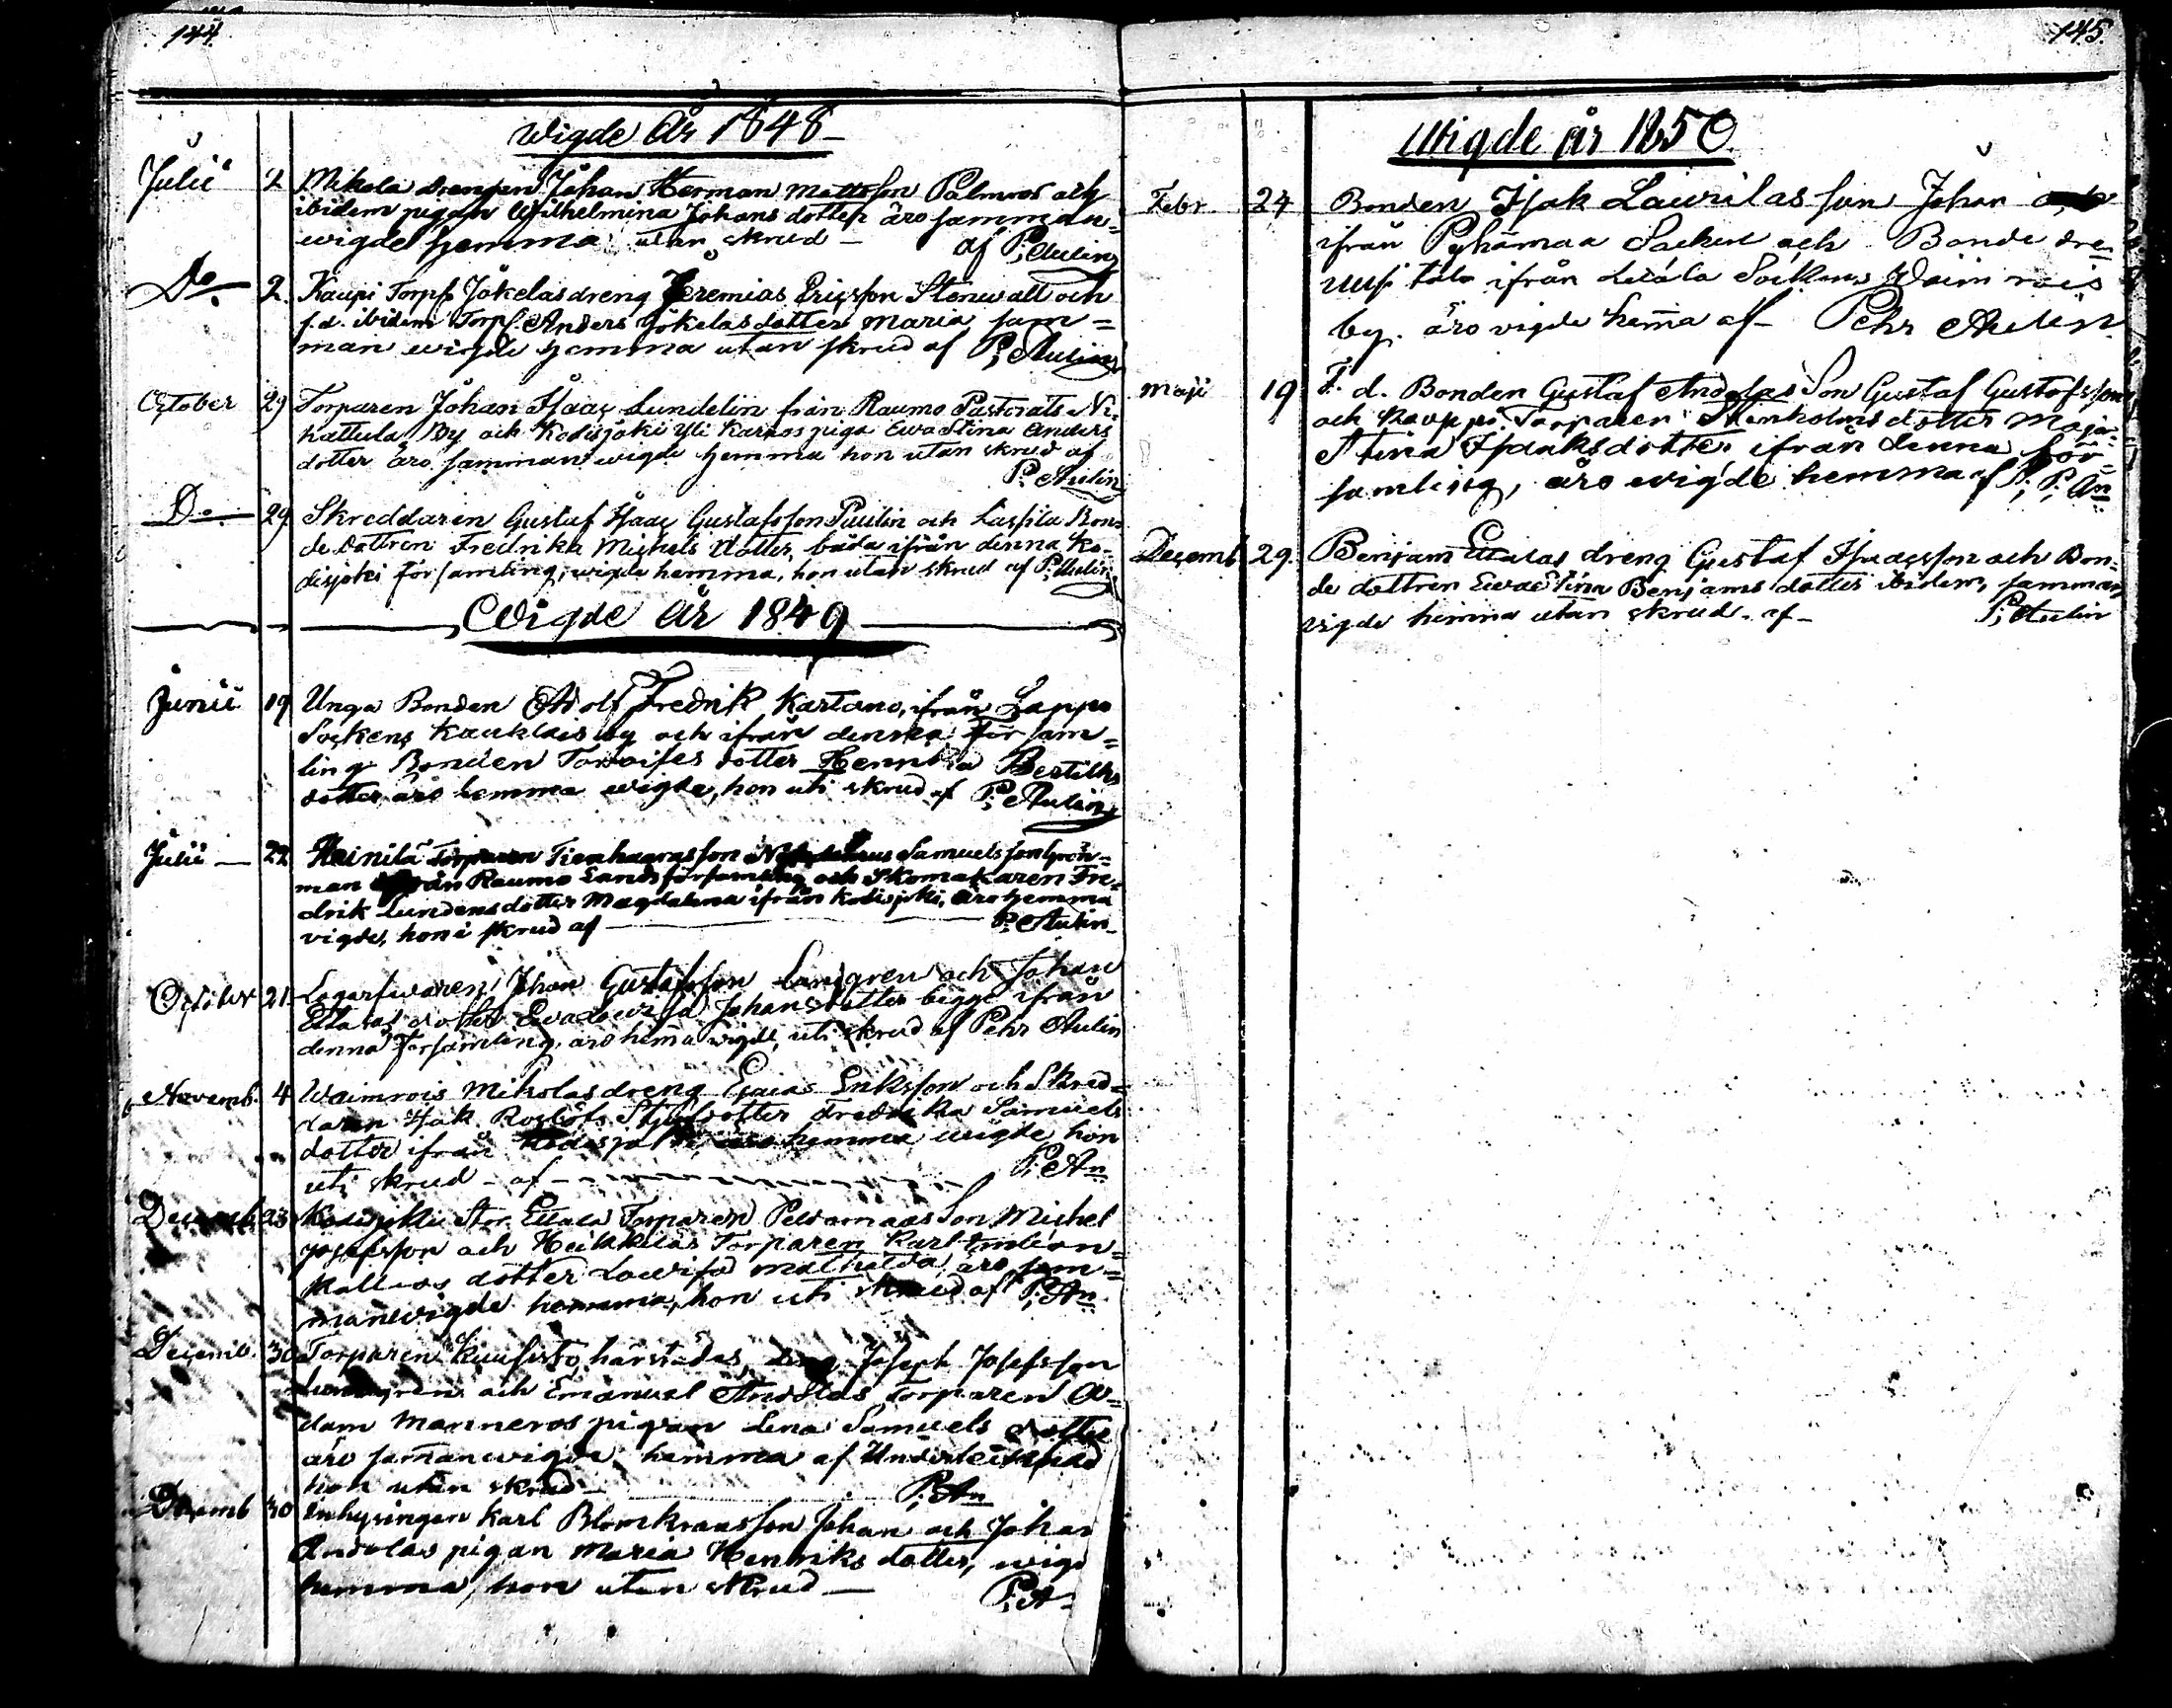 144
Wigde År 1848
Julii 2 Mikola Drengen Johan Herman Mattsson Palmros och
ibidem pigan Wilhelmina Johans dotter äro samman=
wigde hemma utan skrud — af P: Aulin
Do 2. Kaupi Torps Jökelas dreng Jeremias Ericsson Stenwall och
f.d. ibidem Torp. Anders Jökelas dotter Maria sam=
man wigde hemma utan skrud af P; Aulin
October 29 Torparen Johan Isaac Lundelin från Raumo Pastorats
hattula By och Kodisjoki Yli Karnos piga Ewa Stina Anders
dotter äro samman wigde hemma hon utan skrud af
P: Aulin
Do 29 Skreddaren Gustaf Isaac Gustafsson Paulin och Lassila Bon=
de dottren Fredrika Michels dotter, båda ifrån denna Ko=
disjoki församling, wigde hemma, hon utan skrud af P: Aulin
Wigde År 1849
Junii 19 Unga Bonden Adolf Fredrik Kartano, ifrån Lappo
Sockens Kauklais by och ifrån denna För sam=
ling Bonden dotter Bertills
dotter äro hemma wigde, hon uti skrud af P; Aulin
Julii — 22 Heinilä Torparen son Samuelsson Grön=
man ifrån Raumo Landsförsamling och Skomakaren Fre=
drik Lundens dotter Magdalena ifrån Kodisjoki, äro hemma
vigde, hon i skrud af — P: Aulin
October 21 Johan Gustafsson och Johan
dotter Ewa Lowisa Johans dotter begge ifrån
denna Församling, äro hemma wigde, uti skrud af Pehr Aulin
Novemb. 4 Waimrois Mikolas dreng Esaias Eriksson och Skred=
daren Isak dotter Fredrika Samuels
dotter ifrån Kodisjoki, äro hemma wigde, hon
uti skrud – af – P: An
23 Kodisjoki Stor Ettala Torparen son Michel
Josefsson och Heikkilas Torparen Karl
dotter Lowisa Mathilda, äro sam=
manwigde hemma, hon uti skrud af P: An
Decemb. 30 Torparen härstädes, dreng Joseph Josefsson
Lundgren och Emanuel Andolas Torparen A=
dam Manneros pigan Lena Samuels dotter
äro samanwigde hemma af
hon utan skrud — P: An
Decemb 30 Inhysingen Karl son Johan och Johan
Andolas pigan Maria Henriks dotter, wigd
hemma, hon utan skrud — P: A
145.
Wigde år 1850.
Febr. 24 Bonden Isak Laurilas son Johan
ifrån Pyhämaa Socken och Bonde
ifrån Letala Sockens Waimrois
by. äro vigde hemma af Pehr Aulin
Maji 19 F. d. Bonden Gustaf Andolas Son Gustaf Gustafsson
och Torparen Stenholms dotter Maja
Stina Isaksdotter ifrån denna för
samling, äro wigde hemma af P; An
Decemb 29. Benjam Ettalas dreng Gustaf Isaacsson och Bon=
de dottren Ewa Stina Benjams dotter ibidem, samman
vigde hemma utan skrud – af – P; Aulin